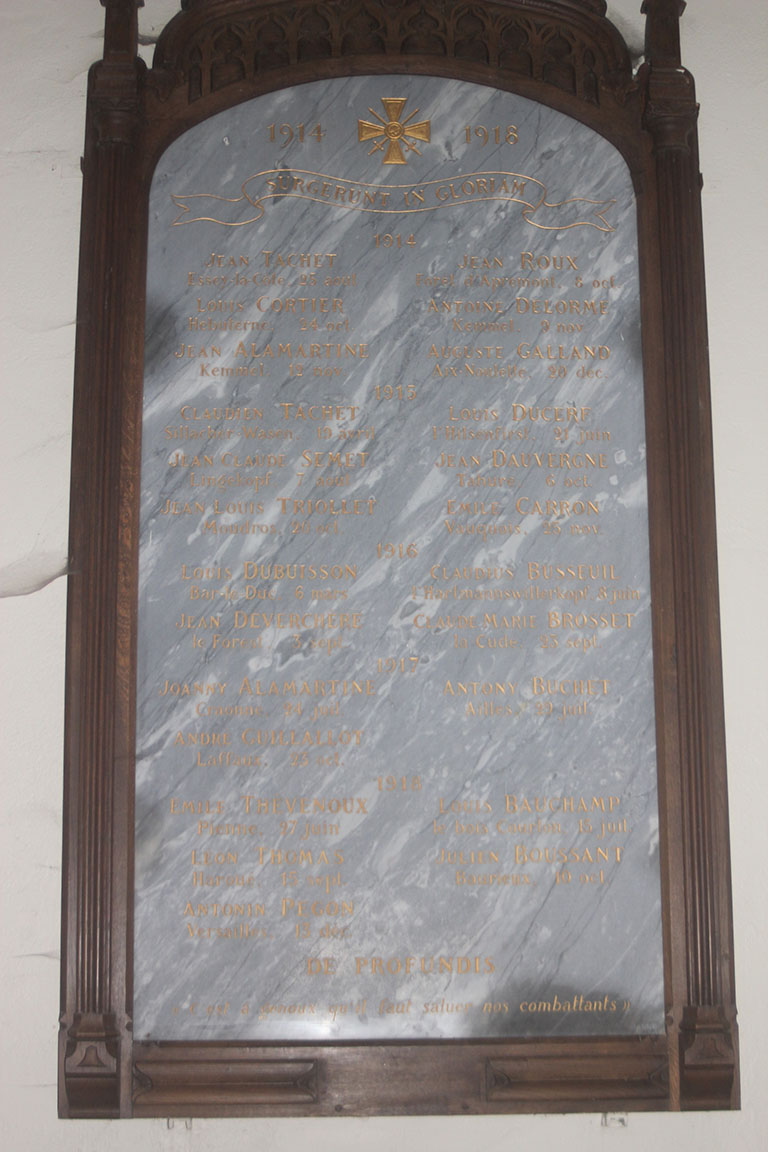 1914 1918
SURGERUNT IN GLORIAM
1914
JEAN TACHET JEAN ROUX
Essey-la-Côte, 25 août 8 oct.
LOUIS CORTIER ANTOINE DELORME
Hébuterne, 24 oct. Kemmel, 9 nov.
JEAN ALAMARTINE AUGUSTE GALLAND
Kemmel, 12 nov. Aix-Noulette, 28 déc.
1915
CLAUDIEN TACHET LOUIS DUCERF
19 avril 21 juin
JEAN CLAUDE SEMET JEAN DAUVERGNE
Lingekopf, 7 août Tahure, 6 oct.
JEAN LOUIS TRIOLLET EMILE CARRON
Moudros, 26 oct. 25 nov.
1916
LOUIS DUBUISSON CLAUDIUS BUSSEUIL
Bar-le-Duc, 6 mars l'Hartmannswillerkopf, 8 juin
JEAN DEVERCHÈRE CLAUDE MARIE BROSSET
le Forest, 3 sept. 25 sept.
1917
JOANNY ALAMARTINE ANTONY BUCHET
Craonne, juil. Ailles, juil.
ANDRÉ
Laffaux, 23 oct.
1918
EMILE THEVENOUX LOUIS BAUCHAMP
27 juin 15 juil.
LÉON THOMAS JULIEN BOUSSANT
15 sept. 10 oct.
ANTONIN PEGON
Versailles, 12 déc.
DE PROFUNDIS
« C'est à genoux qu'il faut saluer nos combattants »